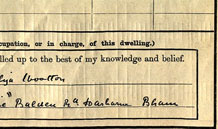 cupation, or in charge, of this dwelling.)
lled up to the best of my knowledge and belief.
Wootton
Balden Rd Harborne Bham